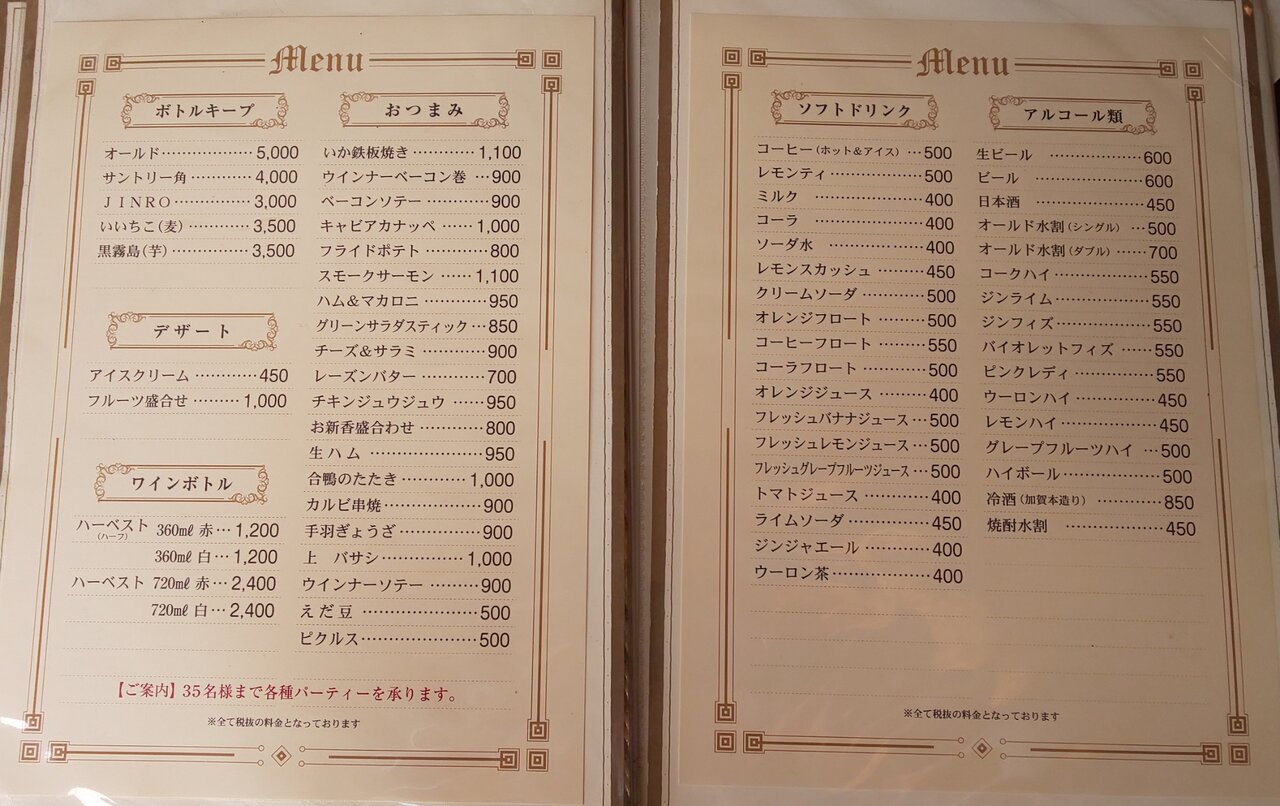 Menu
ボトルキープ
オールド 5,000
サントリー角 4,000
JINRO 3,000
いいちこ(麦) 3,500
黒霧島(芋) 3,500
デザート
アイスクリーム 450
フルーツ盛合せ 1,000
ワインボトル
ハーベスト(ハーフ) 360㎖ 赤 1,200
360㎖ 白 1,200
ハーベスト 720㎖ 赤 2,400
720㎖ 白 2,400
おつまみ
いか鉄板焼き 1,100
ウインナーベーコン巻 900
ベーコンソテー 900
キャビアカナッペ 1,000
フライドポテト 800
スモークサーモン 1,100
ハム&マカロニ 950
グリーンサラダスティック 850
チーズ&サラミ 900
レーズンバター 700
チキンジュウジュウ 950
お新香盛合わせ 800
生ハム 950
合鴨のたたき 1,000
カルビ串焼 900
手羽ぎょうざ 900
上 バサシ 1,000
ウインナーソテー 900
えだ豆 500
ピクルス 500
【ご案内】35名様まで各種パーティーを承ります。
※全て税抜の料金となっております
Menu
ソフトドリンク
コーヒー(ホット&アイス) 500
レモンティ 500
ミルク 400
コーラ 400
ソーダ水 400
レモンスカッシュ 450
クリームソーダ 500
オレンジフロート 500
コーヒーフロート 550
コーラフロート 500
オレンジジュース 400
フレッシュバナナジュース 500
フレッシュレモンジュース 500
フレッシュグレープフルーツジュース 500
トマトジュース 400
ライムソーダ 450
ジンジャエール 400
ウーロン茶 400
アルコール類
生ビール 600
ビール 600
日本酒 450
オールド水割(シングル) 500
オールド水割(ダブル) 700
コークハイ 550
ジンライム 550
ジンフィズ 550
バイオレットフィズ 550
ピンクレディ 550
ウーロンハイ 450
レモンハイ 450
グレープフルーツハイ 500
ハイボール 500
冷酒(加賀本造り) 850
焼酎水割 450
※全て税抜の料金となっております